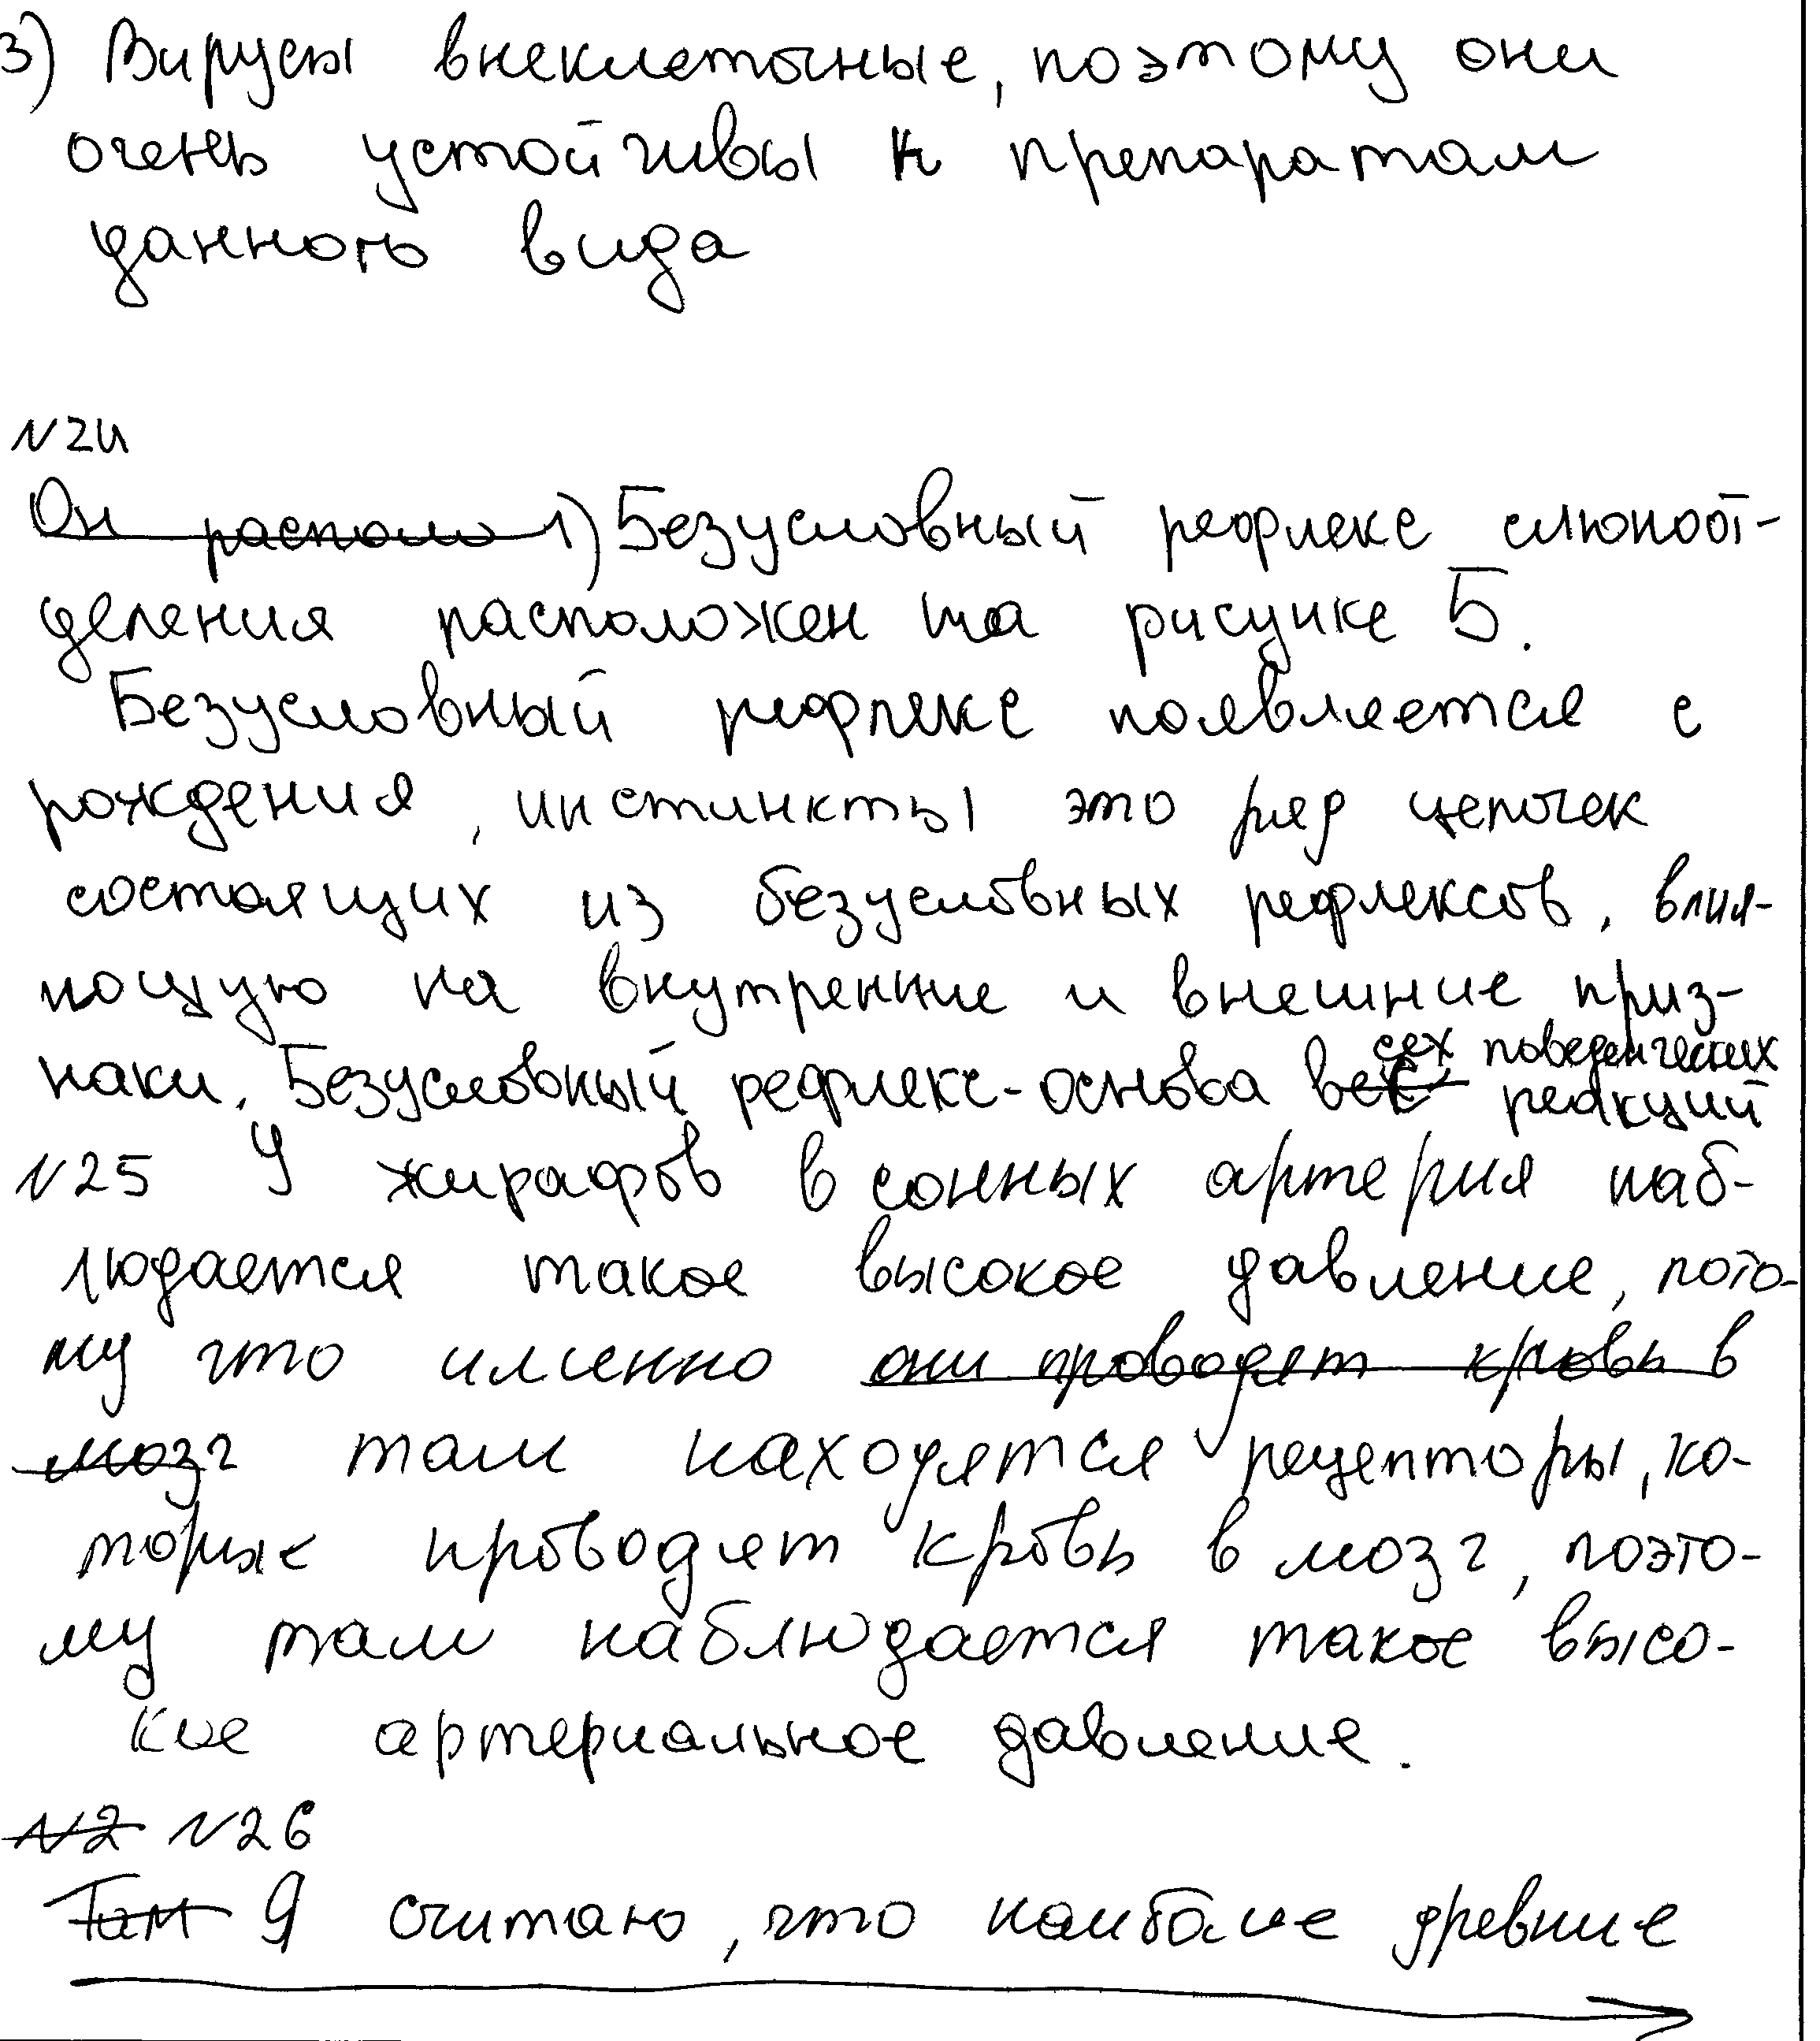 3) Вирусы внеклеточные, поэтому они
очень устойчивы к препаратам
данного вида
N24
Он располо 1) Безусловный рефлекс слюноот-
деления расположен на рисунке Б.
Безусловный рефлекс появляется с
рождения, инстинкты это ряд цепочек
состоящих из безусловных рефлексов, влия-
ющую на внутренние и внешние приз-
наки. Безусловный рефлекс-основа всех поведенческих реакций
N25 У жирафов в сонных артерия наб-
людается такое высокое давление, пото-
му что именно они проводят кровь в
мозг там находятся рецепторы, ко-
торые проводят кровь в мозг, поэто-
му там наблюдается такое высо-
кое артериальное давление.
N2 N26
Там Я считаю, что наиболие древние